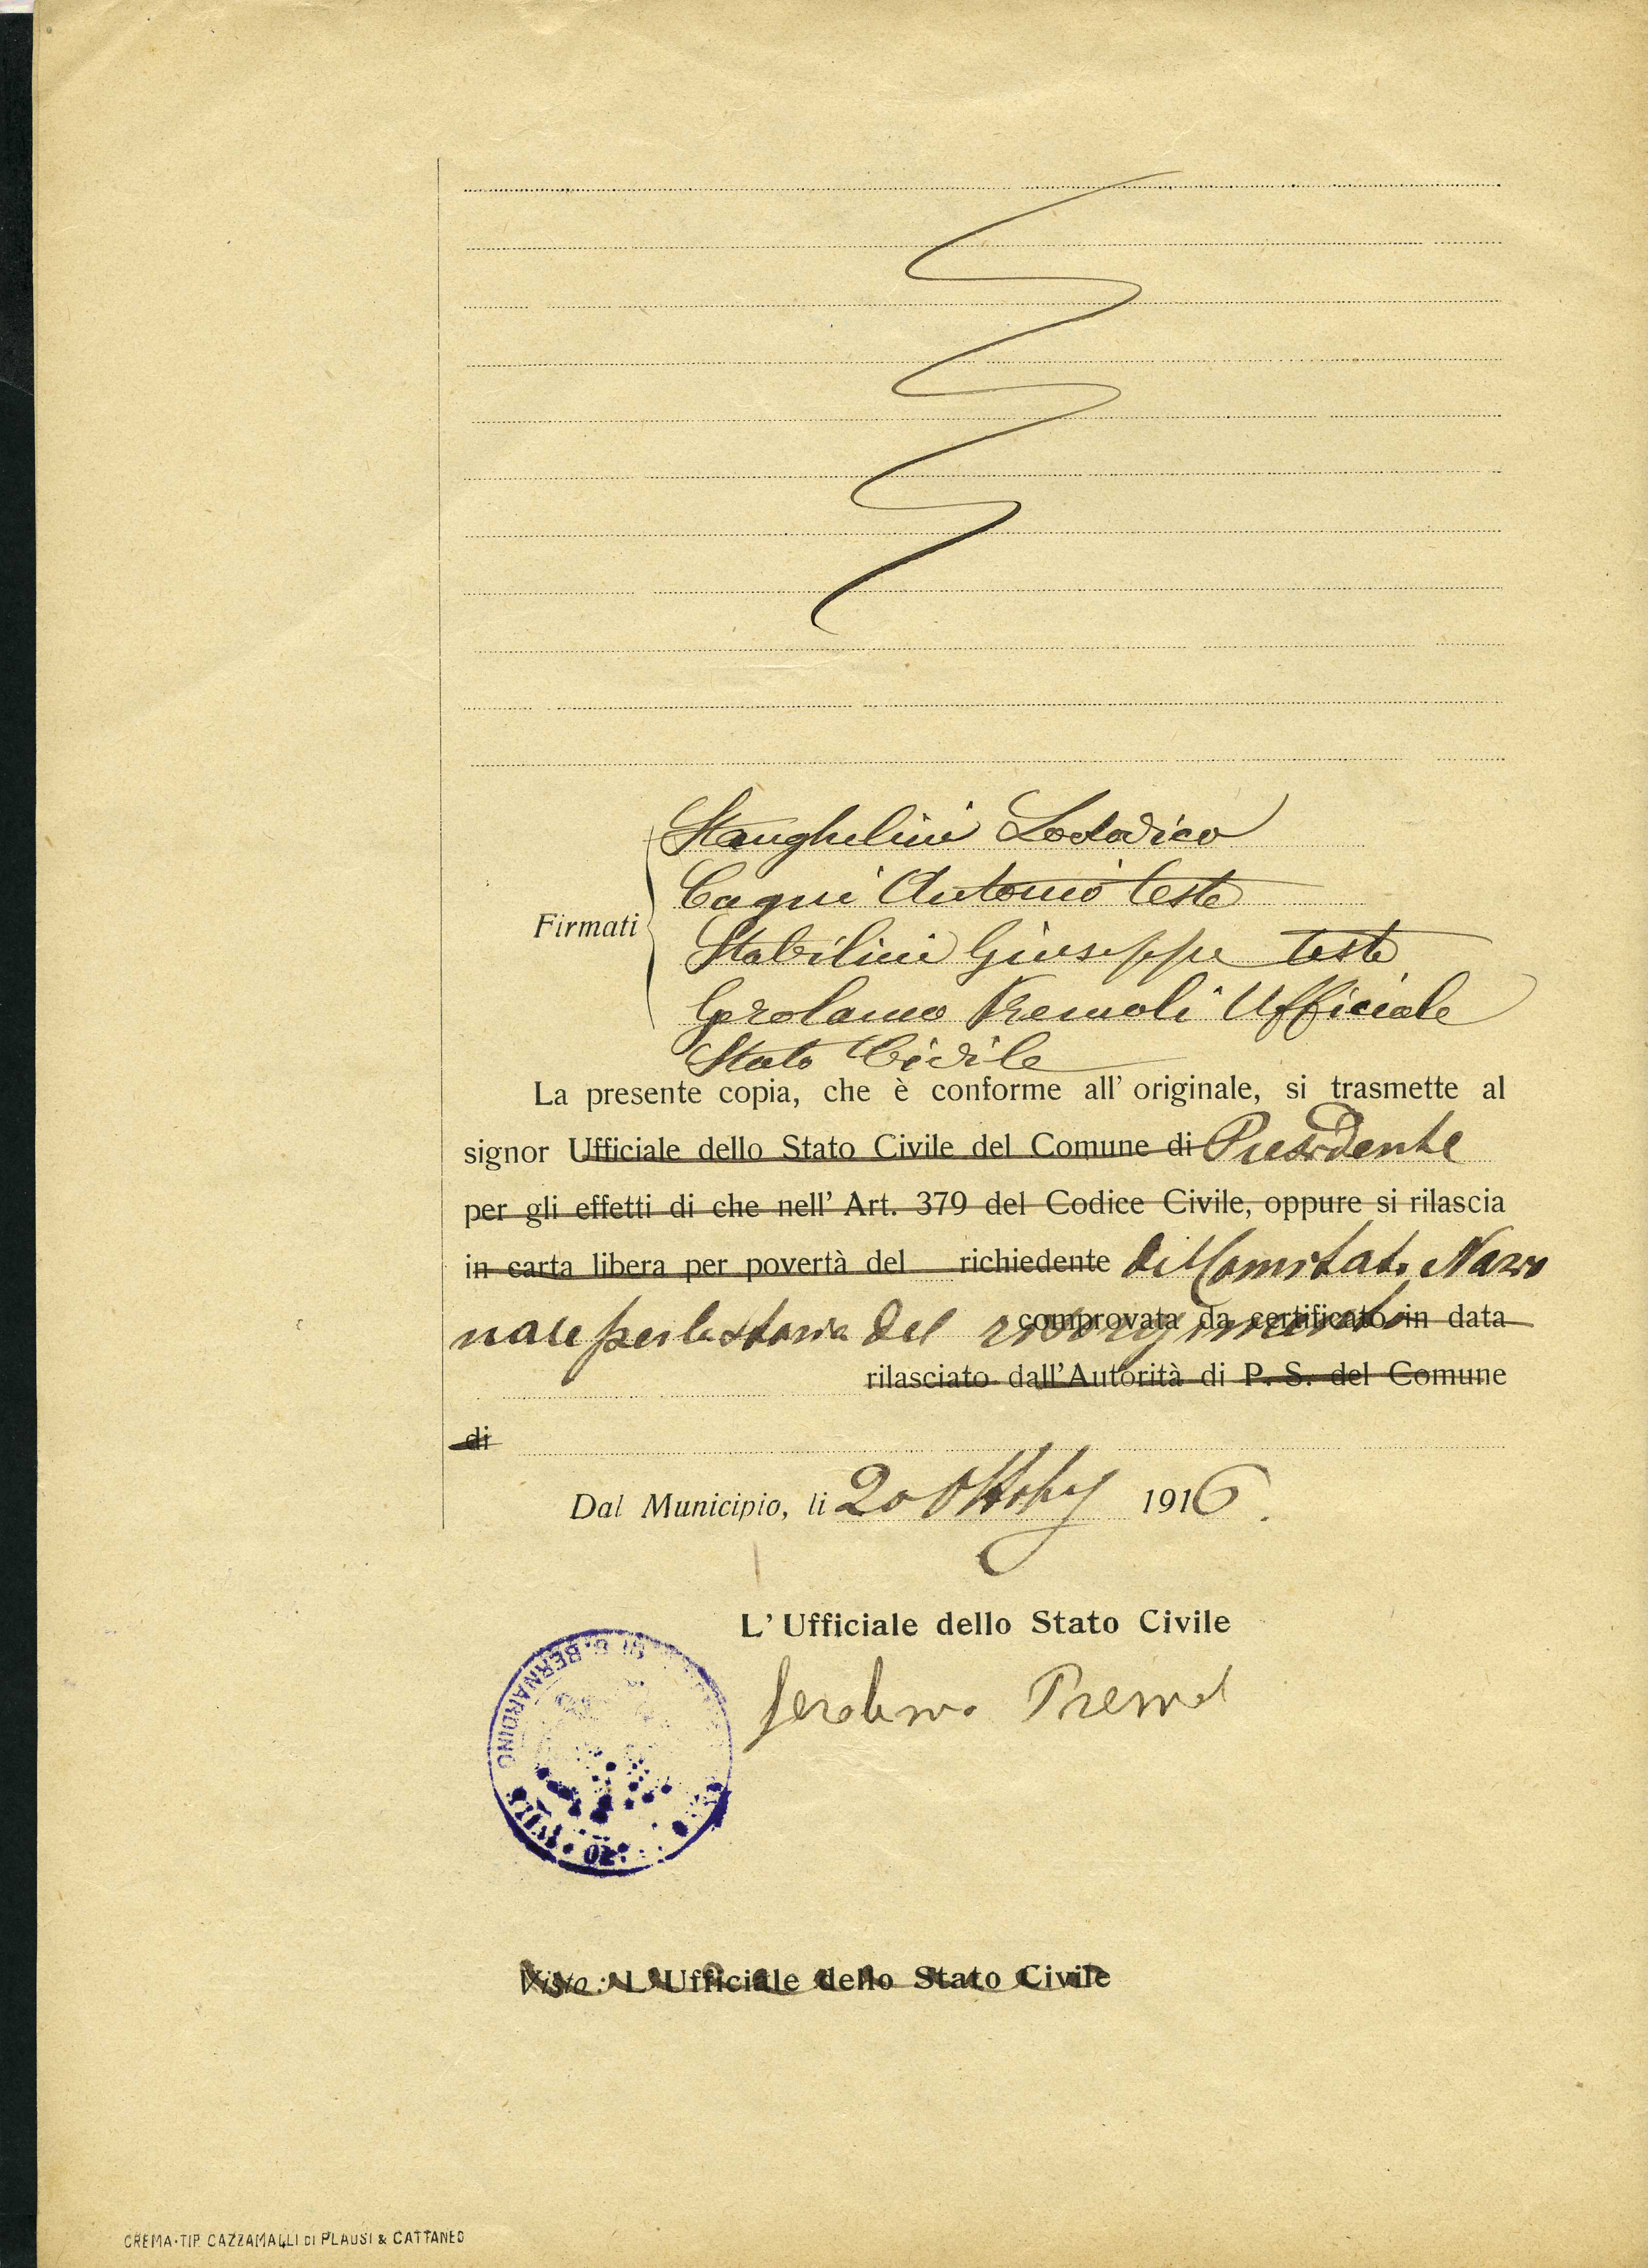 Stanghelini Lodovico
Cagni Antonio teste
Firmati
Stabilini Giuseppe teste
Gerolamo Premoli Ufficiale
Stato Civile
La presente copia, che è conforme all' originale, si trasmette al
signor Ufficiale dello Stato Civile del Comune di Presidente
per gli effetti di che nell' Art. 379 del Codice Civile, oppure si rilascia
in carta libera per povertà del richiedente del Comitato Nazio
nale per la storia del risorgimento comprovata da certificato in data
rilasciato dall'Autorità di P. S. del Comune
di
Dal Municipio, li 20 Ottobre 1916.
L' Ufficiale dello Stato Civile
Gerolamo Premol
BERNARDINO
Visto: L'Ufficiale dello Stato Civile
CREMA-TIP. CAZZAMALLI DI PLAUSI & CATTANEO